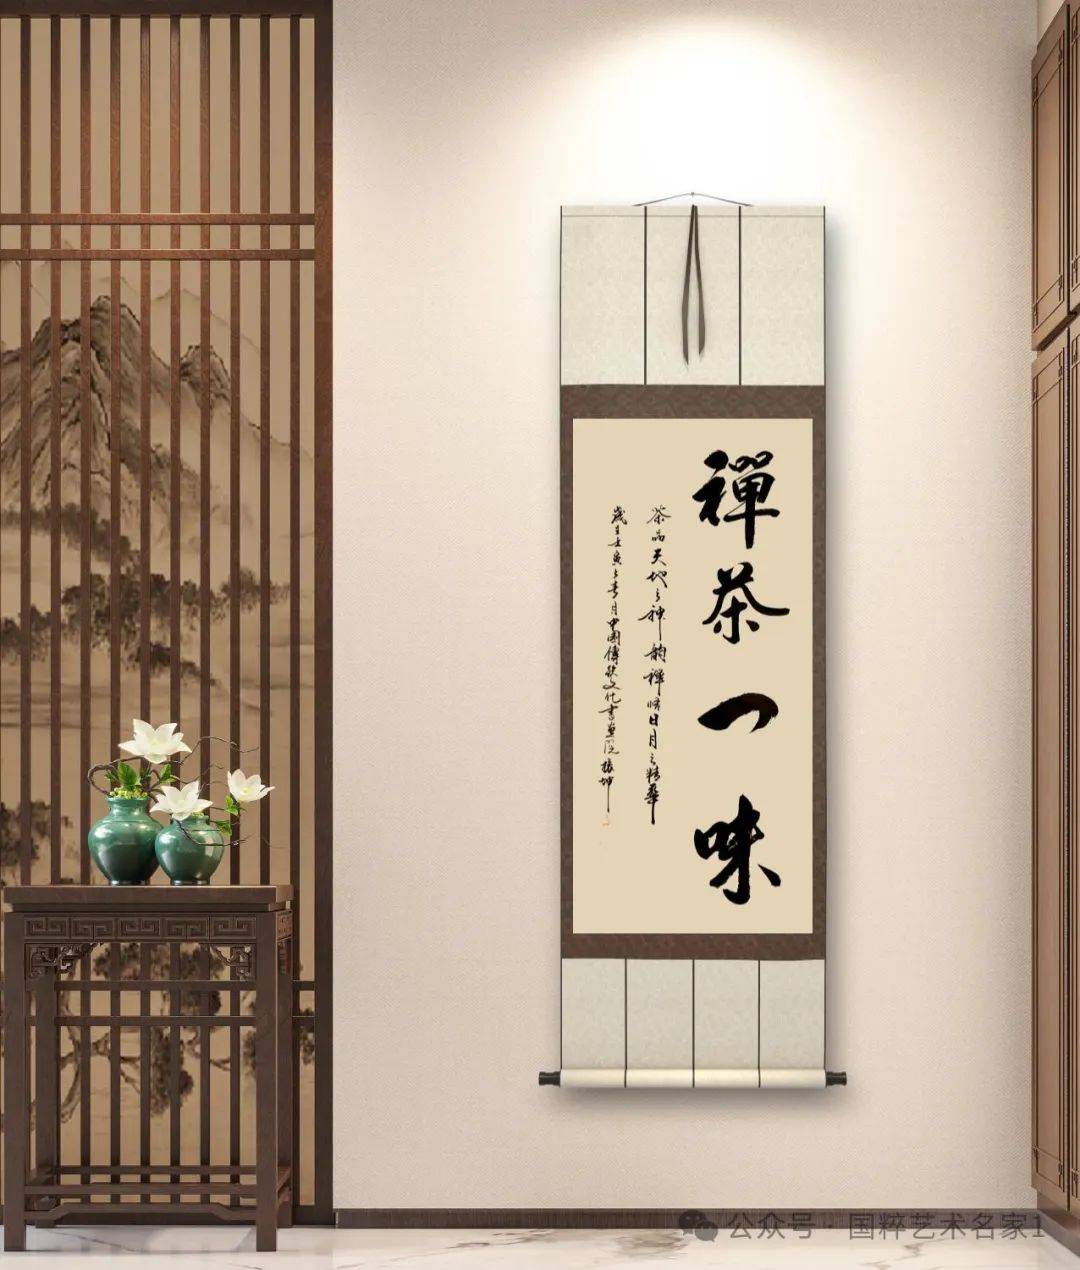 禪茶一味
茶品天地之神韵禪悟日月之精華
歲月壬寅之春月中國傳統文化書畫院振坤
公众号·国粹艺术名家1